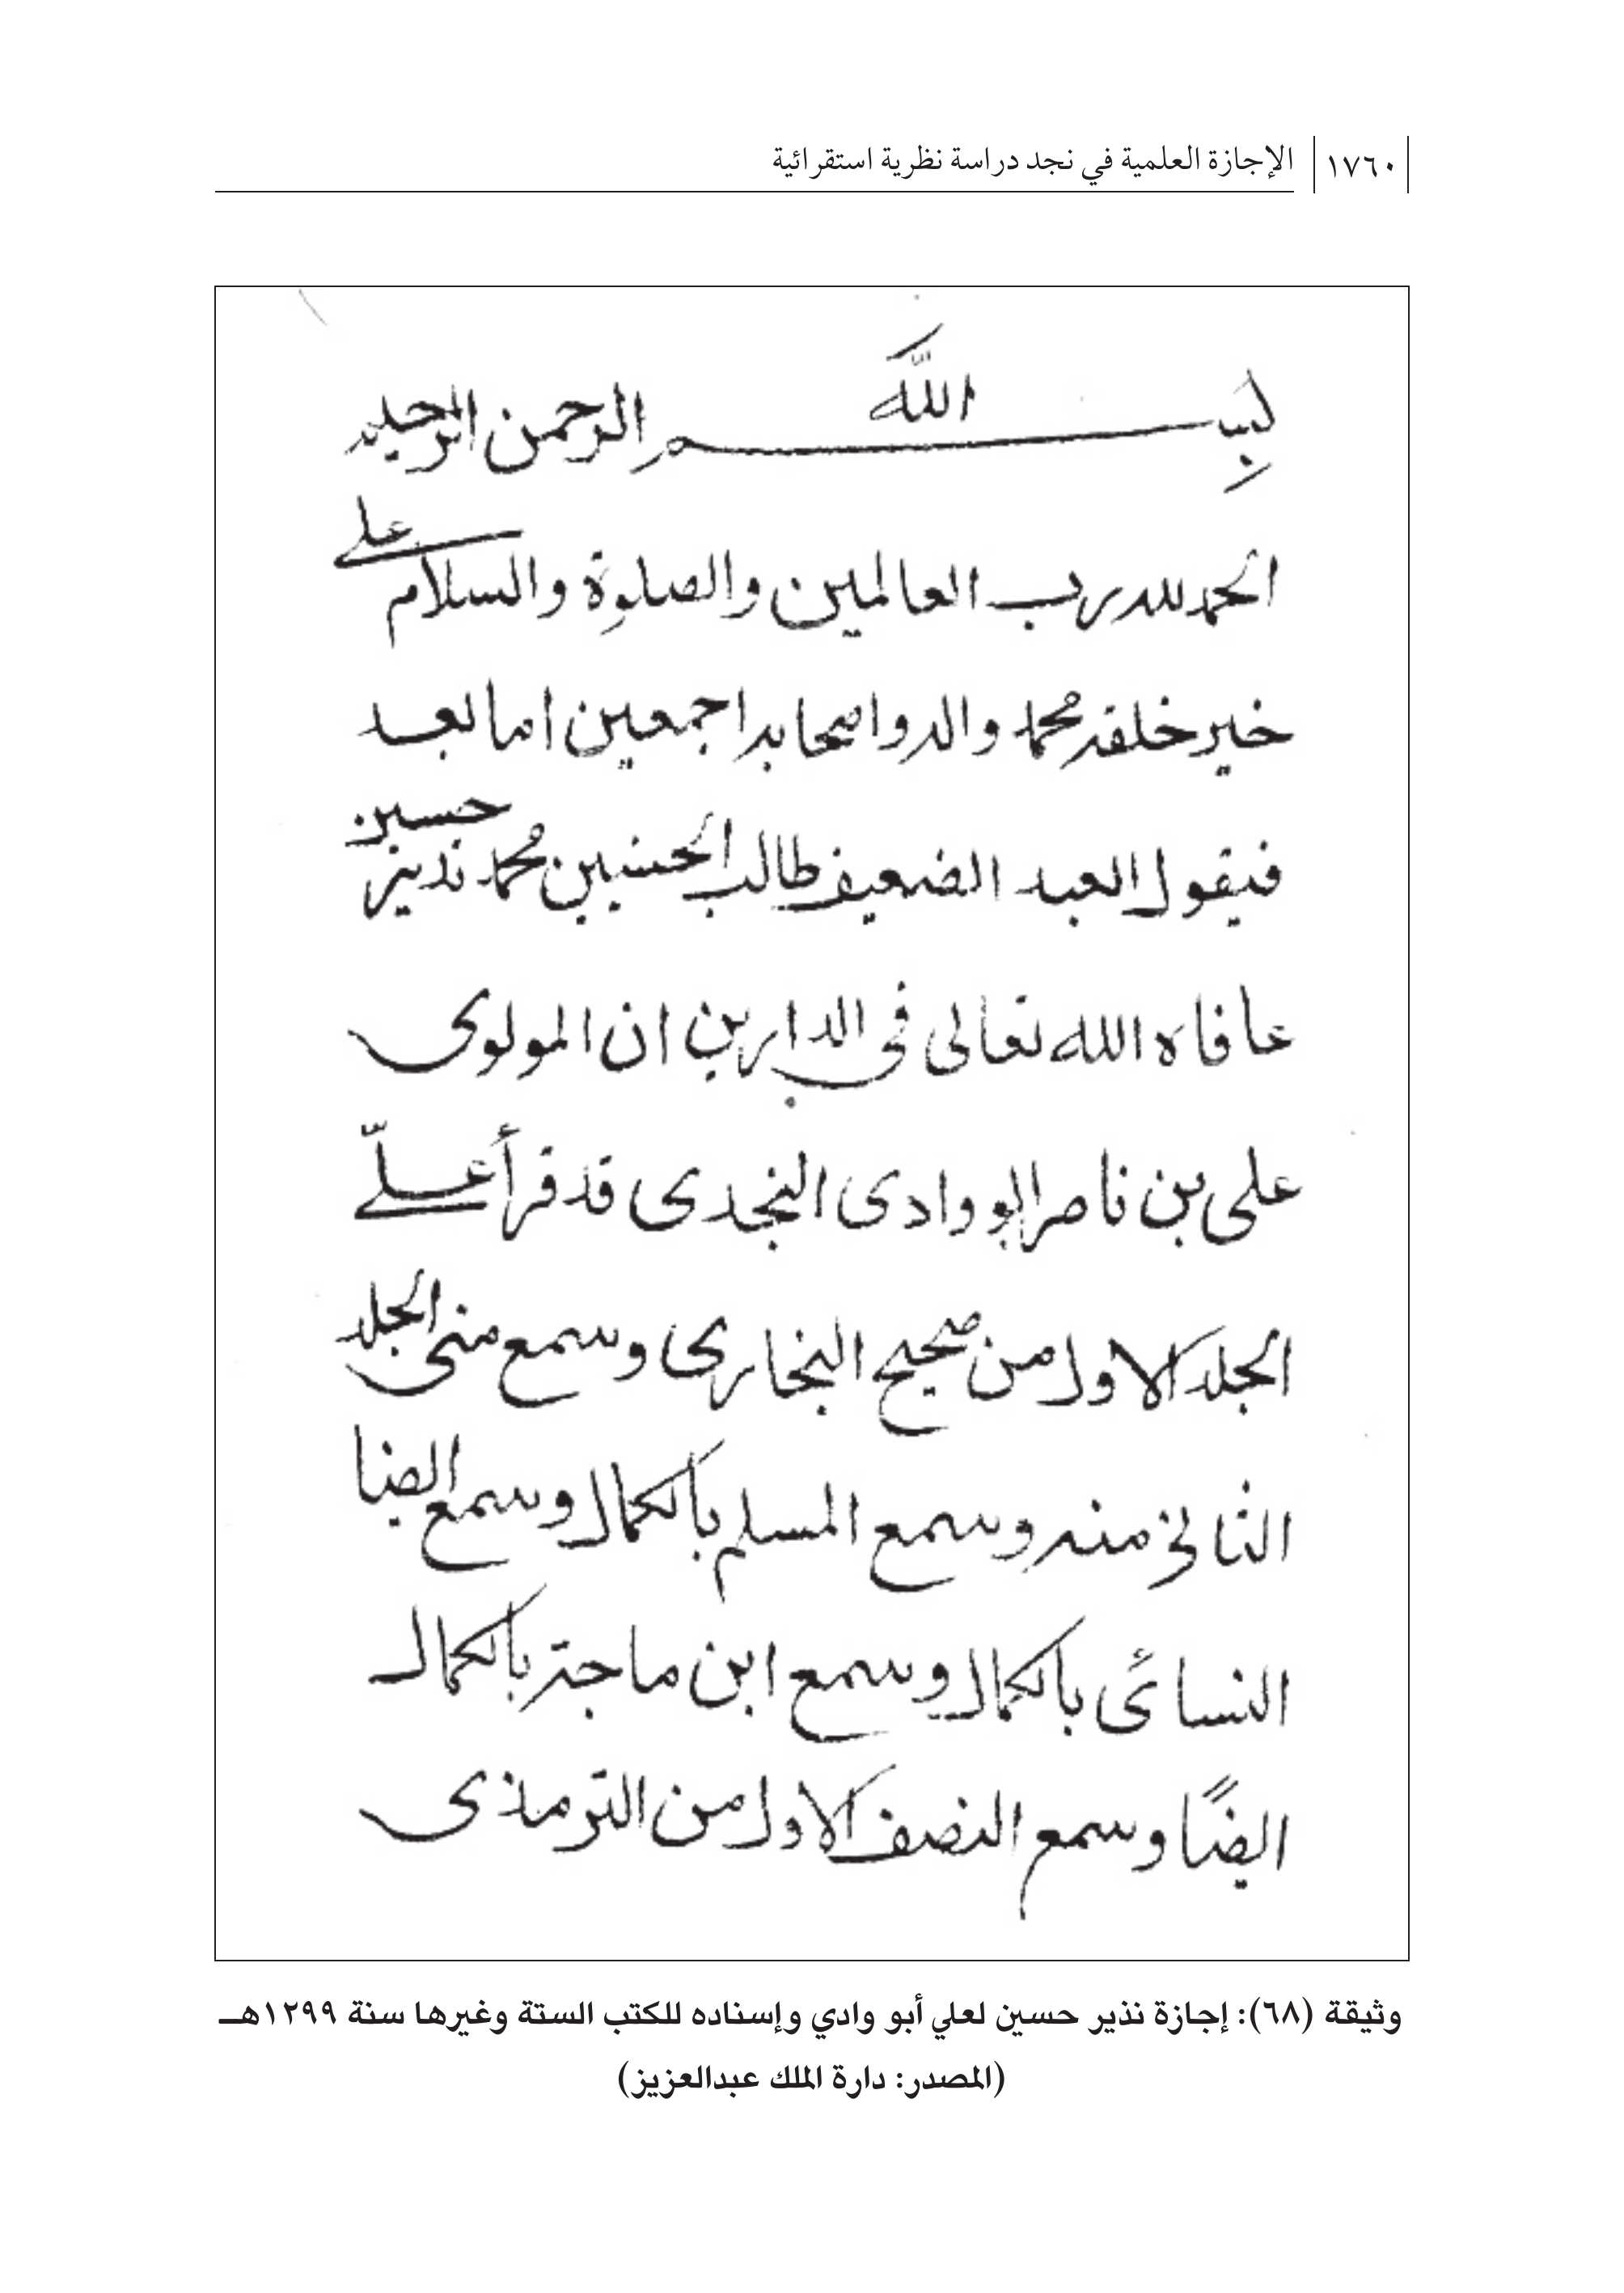 ١٧٦٠ الإجازة العلمية في نجد دراسة نظرية استقرائية
بسم الله الرحمن الرحيم
الحمد لله رب العالمين والصلوة والسلام على
خير خلقه محمد واله واصحابه اجمعين اما بعد
فيقول العبد الضعيف طالب الحسنيين محمد نذير حسين
عافاه الله تعالى فى الدارين ان المولوى
على بن ناصر ابو وادى النجدى قد قرأ علىّ
الجلد الاول من صحيح البخارى وسمع منى الجلد
الثانى منه وسمع المسلم بالكمال وسمع ايضا
النسائى بالكمال وسمع ابن ماجة بالكمال
ايضًا وسمع النصف الاول من الترمذى
وثيقة (٦٨): إجازة نذير حسين لعلي أبو وادي وإسناده للكتب الستة وغيرها سنة ١٢٩٩هـ
(المصدر: دارة الملك عبدالعزيز)